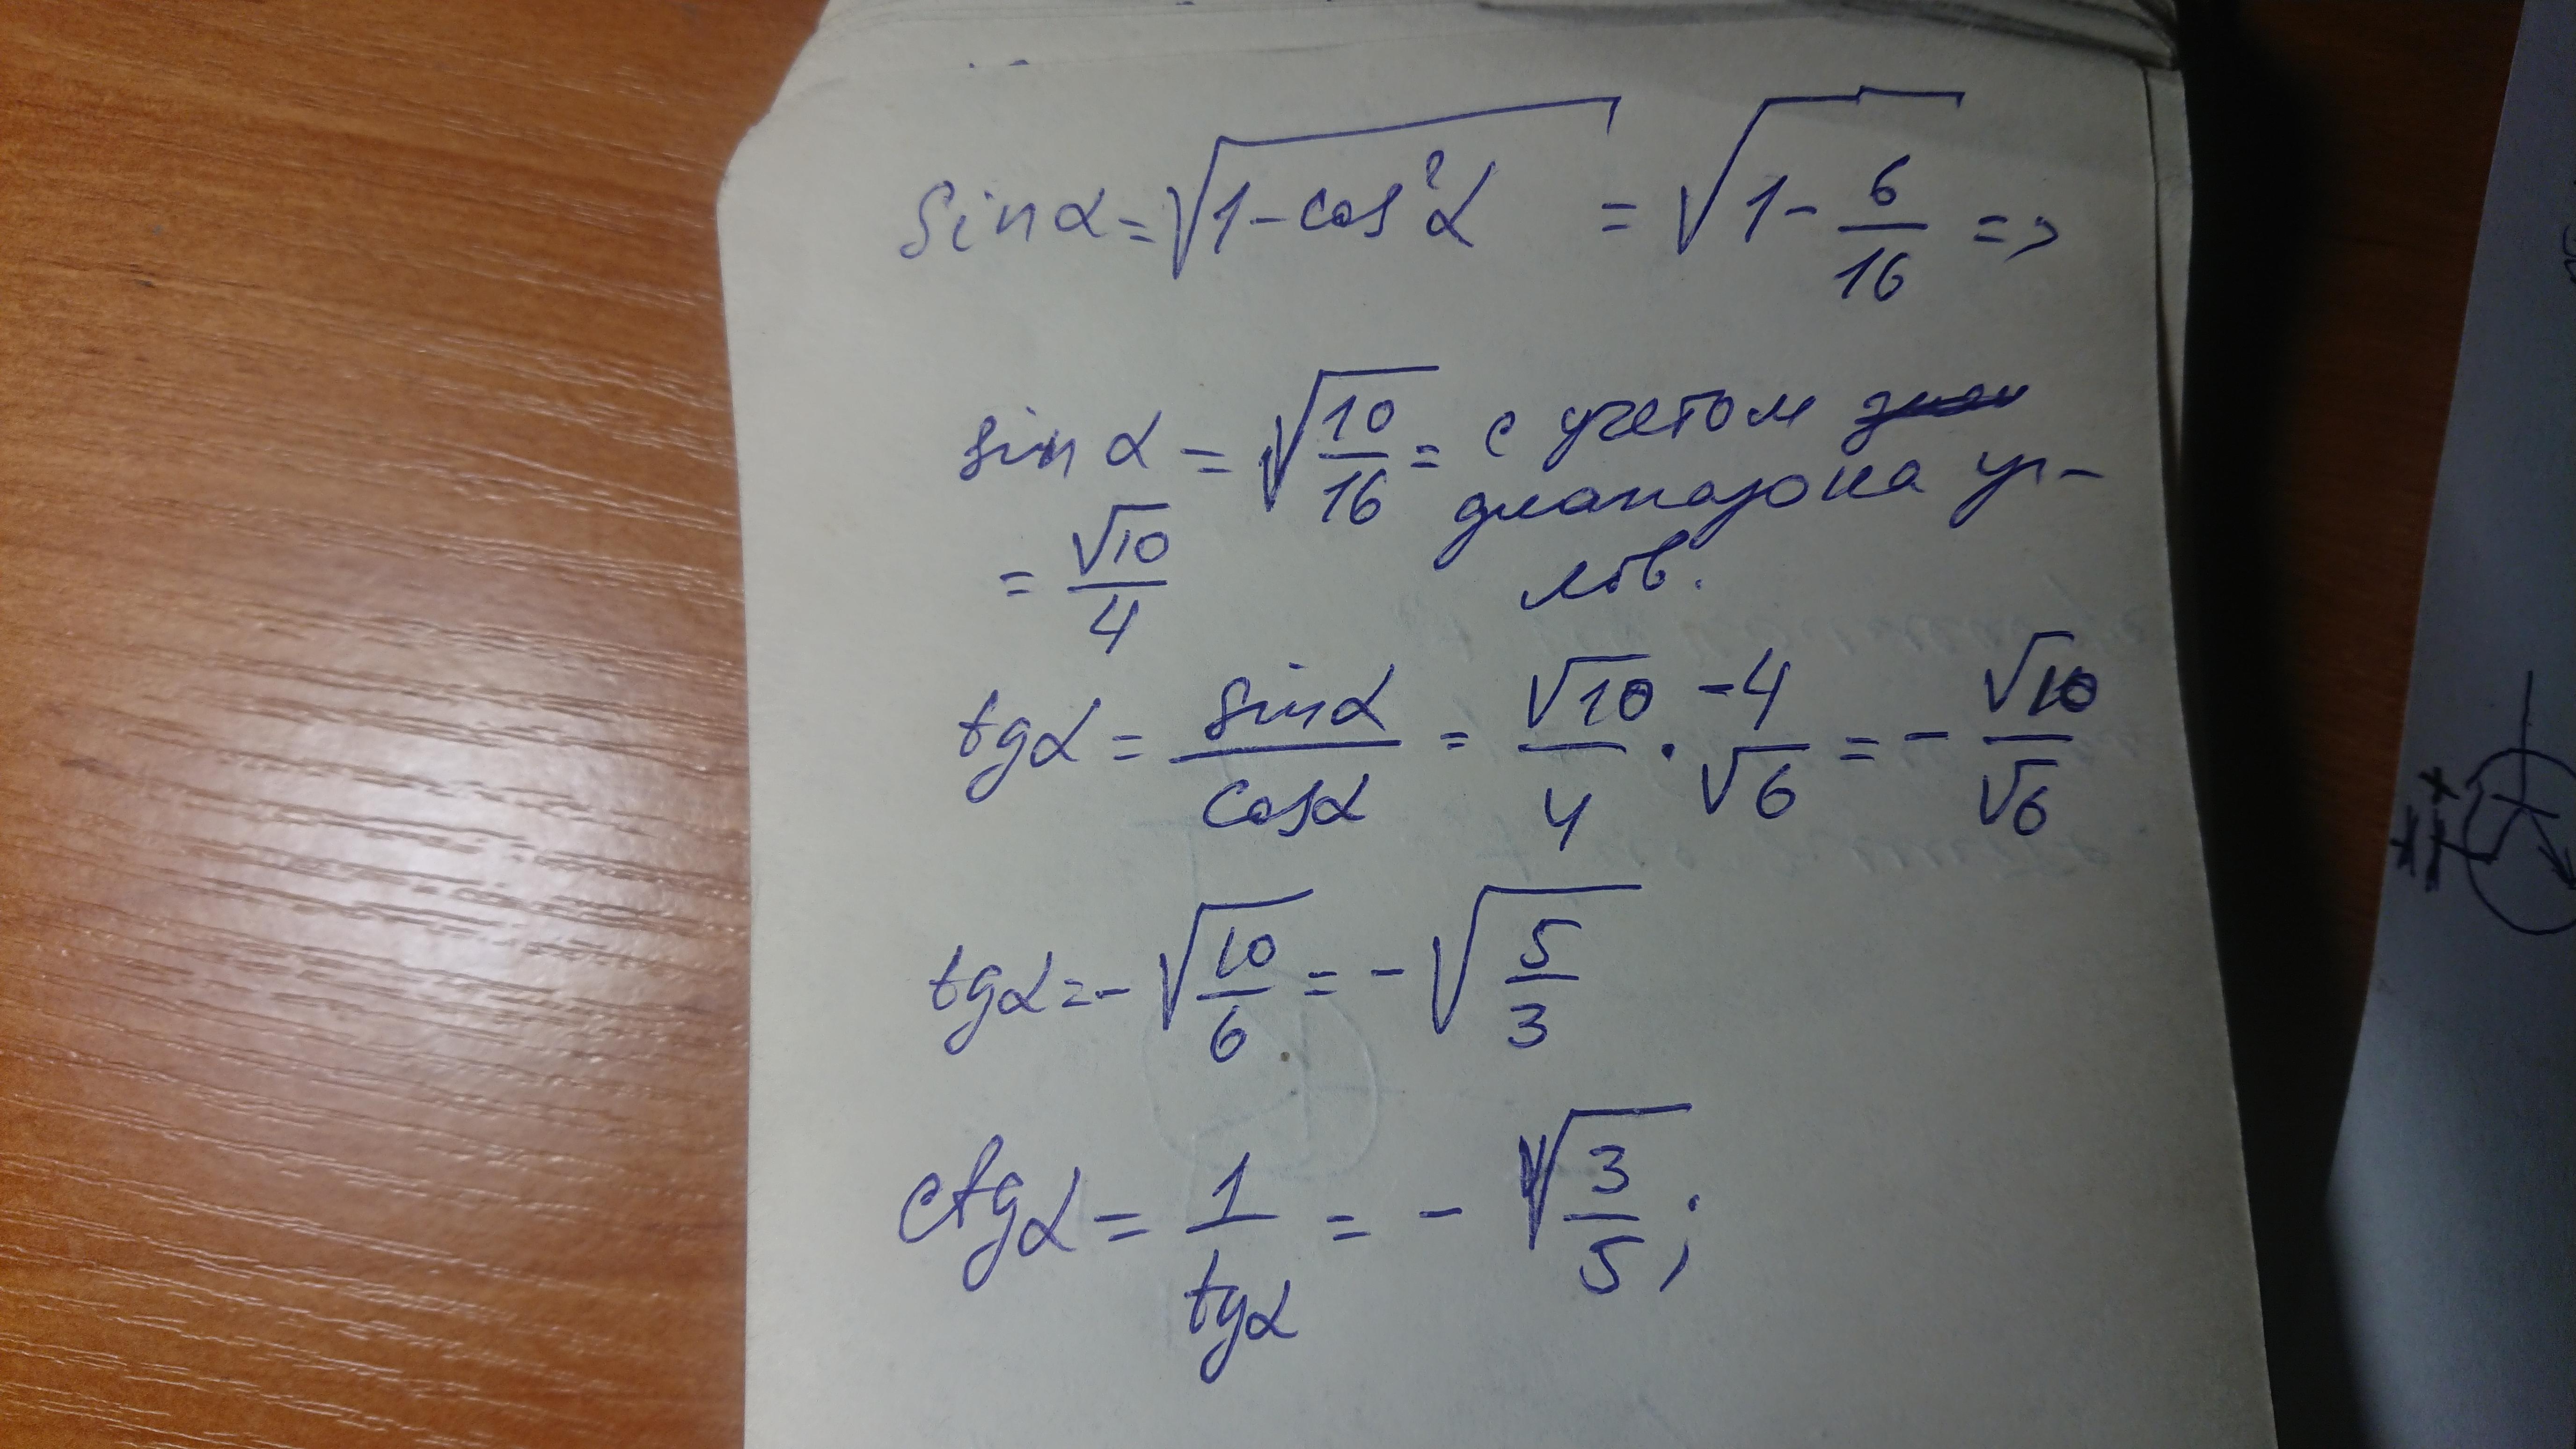 sin α = √(1 - cos²α) = √(1 - 6/16) =>
sin α = √(10/16) = с учетом
диапазона уг-
= √10/4 лов.
tg α = sin α/cos α = √10/4 · -4/√6 = - √10/√6
tg α = - √(10/6) = - √(5/3)
ctg α = 1/tg α = - √(3/5);